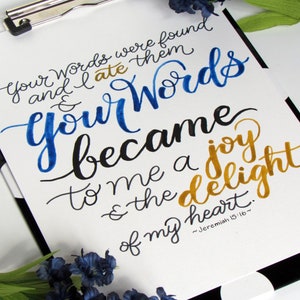 Your Words were found
and I ate them
&
Your Words
became
to me a joy
& the delight
of my heart.
~Jeremiah 15:16~